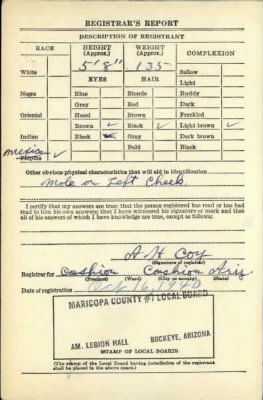 REGISTRAR'S REPORT
DESCRIPTION OF REGISTRANT
RACE HEIGHT (Approx.) WEIGHT (Approx.) COMPLEXION
5'8" 135
White Sallow
EYES HAIR Light
Negro Blue Blonde Ruddy
Gray Red Dark
Oriental Hazel Brown Freckled
Brown ✓ Black ✓ Light brown ✓
Indian Black Gray Dark brown
Mexican ✓ Bald Black
Filipino
Other obvious physical characteristics that will aid in identification
Mole on Left Cheek.
I certify that my answers are true; that the person registered has read or has had
read to him his own answers; that I have witnessed his signature or mark and that
all of his answers of which I have knowledge are true, except as follows:
A H Coy
(Signature of registrar)
Registrar for Cashion Cashion Ariz.
(Precinct) (Ward) (City or county) (State)
Date of registration Oct 16, 1940
MARICOPA COUNTY #1 LOCAL BOARD
AM. LEGION HALL BUCKEYE, ARIZONA
(STAMP OF LOCAL BOARD)
(The stamp of the Local Board having jurisdiction of the registrant
shall be placed in the above space.)